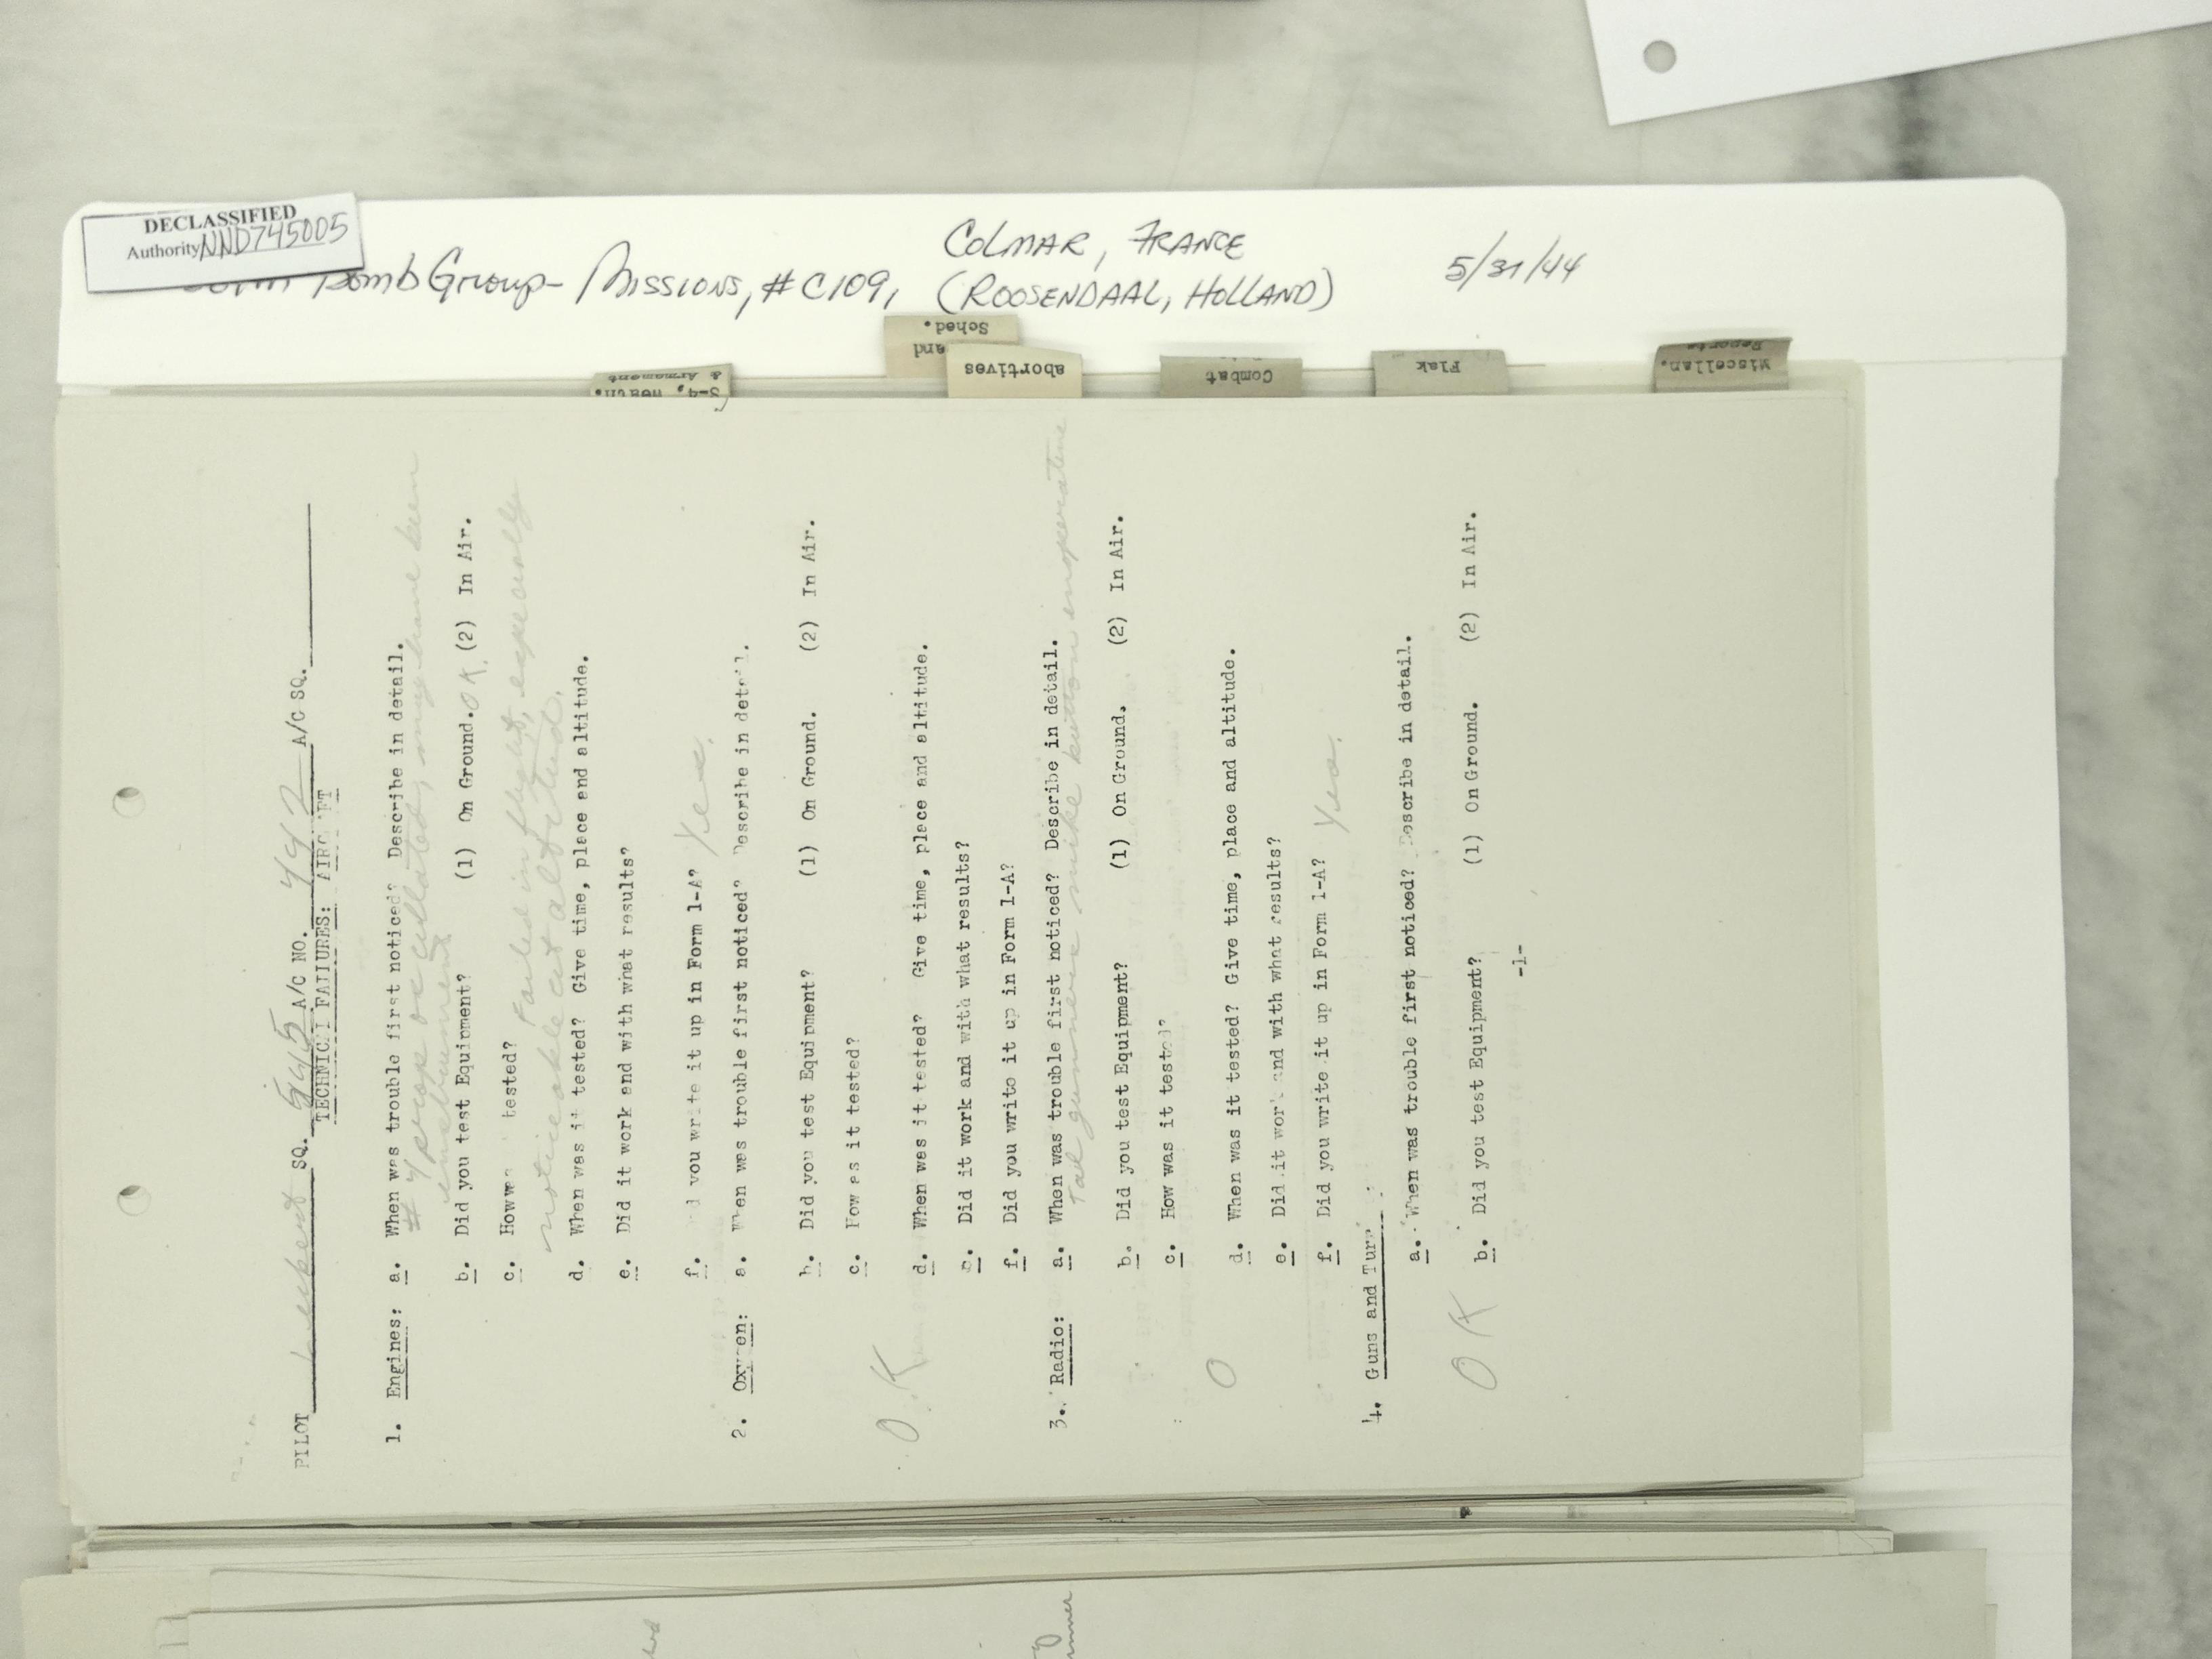 DECLASSIFIED
Authority NND745005
Bomb Group- Missions, #C109,
COLMAR, FRANCE
(ROOSENDAAL, HOLLAND)
5/31/44
& Armament
S-4,
Sched.
and
abortives
Combat
Flak
Miscellan.
Reports
PILOT SQ. 545 A/C NO. 442 A/C SQ.
TECHNICAL FAILURES: AIRC
1. Engines: a. When was trouble first noticed? Describe in detail.
#4 prop oscillated, may have been
instrument
b. Did you test Equipment? (1) On Ground. OK. (2) In Air.
c. How tested? Failed in flight, especially
noticeable at altitude.
d. When was it tested? Give time, place and altitude.
e. Did it work and with what results?
f. you write it up in Form 1-A? Yes.
2. Oxygen: a. When was trouble first noticed? Describe in detail.
b. Did you test Equipment? (1) On Ground. (2) In Air.
c. How as it tested?
O.K
d. When was it tested? Give time, place and altitude.
e. Did it work and with what results?
f. Did you write it up in Form 1-A?
3. Radio: a. When was trouble first noticed? Describe in detail.
Tail gunners mike button inoperative
b. Did you test Equipment? (1) On Ground. (2) In Air.
c. How was it tested?
O
d. When was it tested? Give time, place and altitude.
e. Did it work and with what results?
f. Did you write it up in Form 1-A? Yes.
4. Guns and Turr
a. When was trouble first noticed? Describe in detail.
OK
b. Did you test Equipment? (1) On Ground. (2) In Air.
-1-